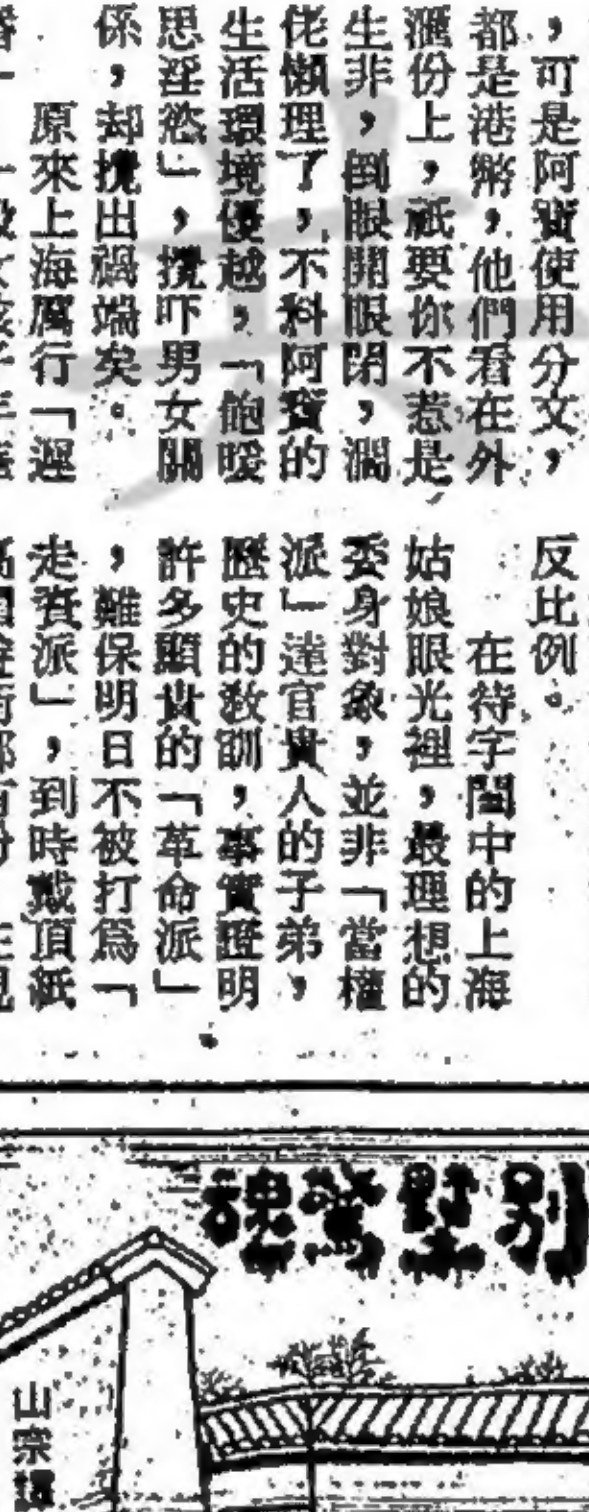 ，可是阿寶使用分文，
都是港幣，他們看在外
滙份上，祇要你不惹是
生非，倒眼開眼閉，濶
佬懶理了，不料阿寶的
生活環境優越，「飽暖
思淫慾」，攪吓男女關
係，却攪出禍端矣。
原來上海厲行「遲
反比例。
在待字閨中的上海
姑娘眼光裡，最理想的
委身對象，並非「當權
派」達官貴人的子弟，
歷史的教訓，事實證明
許多顯貴的「革命派」
，難保明日不被打爲「
走資派」，到時戴頂紙
別墅驚魂
山宗譚